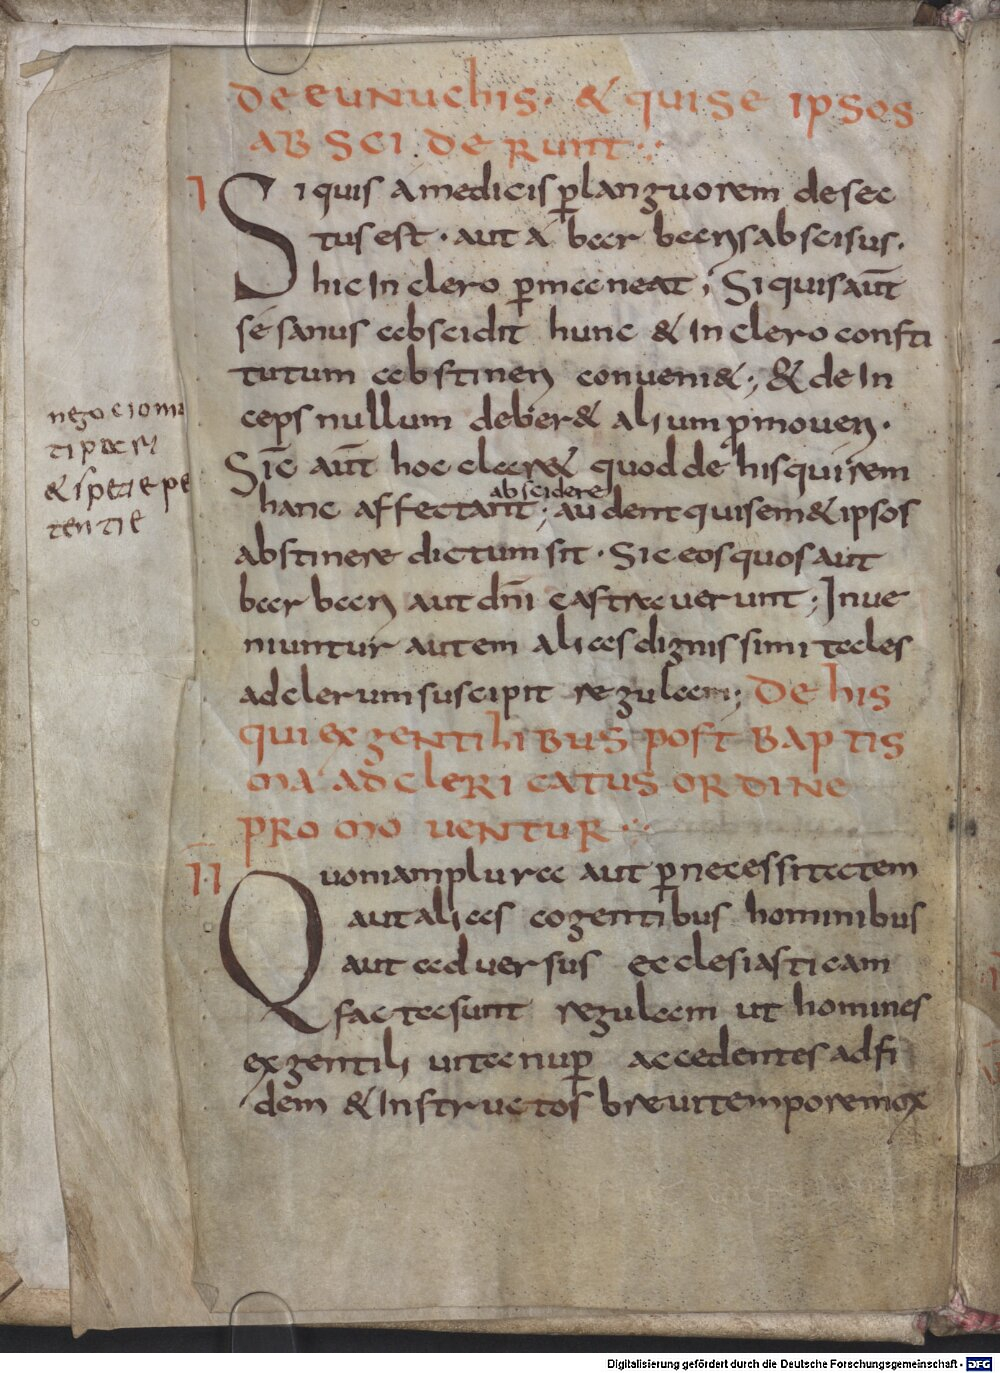 DE EUNUCHIS · & QUI SE IPSOS
ABSCIDERUNT
I
Si quis a medicis p̱ languorem desec
tus est · aut a barbaris abscisus ·
hic In clero p̱maneat ; Si quis aūt
se sanus abscidit hunc & In clero consti
tutum abstineri conueni& ; & de In
ceps nullum deber& alium p̱mouen ·
Sic̄ aūt hoc claru& quod de his qui rem
abscidere
hanc affectant ; audent qui sem& ipsos
abstinere dictum sit · Sic eos quos aut
barbari aut dn̄i castrauerunt ; Inue
niuntur autem alias dignissimi tales
ad clerum suscipit regulam ; DE HIS
QUI EX GENTILIBUS POST BAPTIS
MA AD CLERICATUS ORDINE
PROMOUENTUR
II
Quoniam plura aut p̱ necessitatem
aut alias cogentibus hominibus
aut aduersus ecclesiasticam
facta sunt regulam ut homines
ex gentili uita nup̱ accedentes ad fi
dem & Instructos breui tempore mox
&
Digitalisierung gefördert durch die Deutsche Forschungsgemeinschaft - DFG